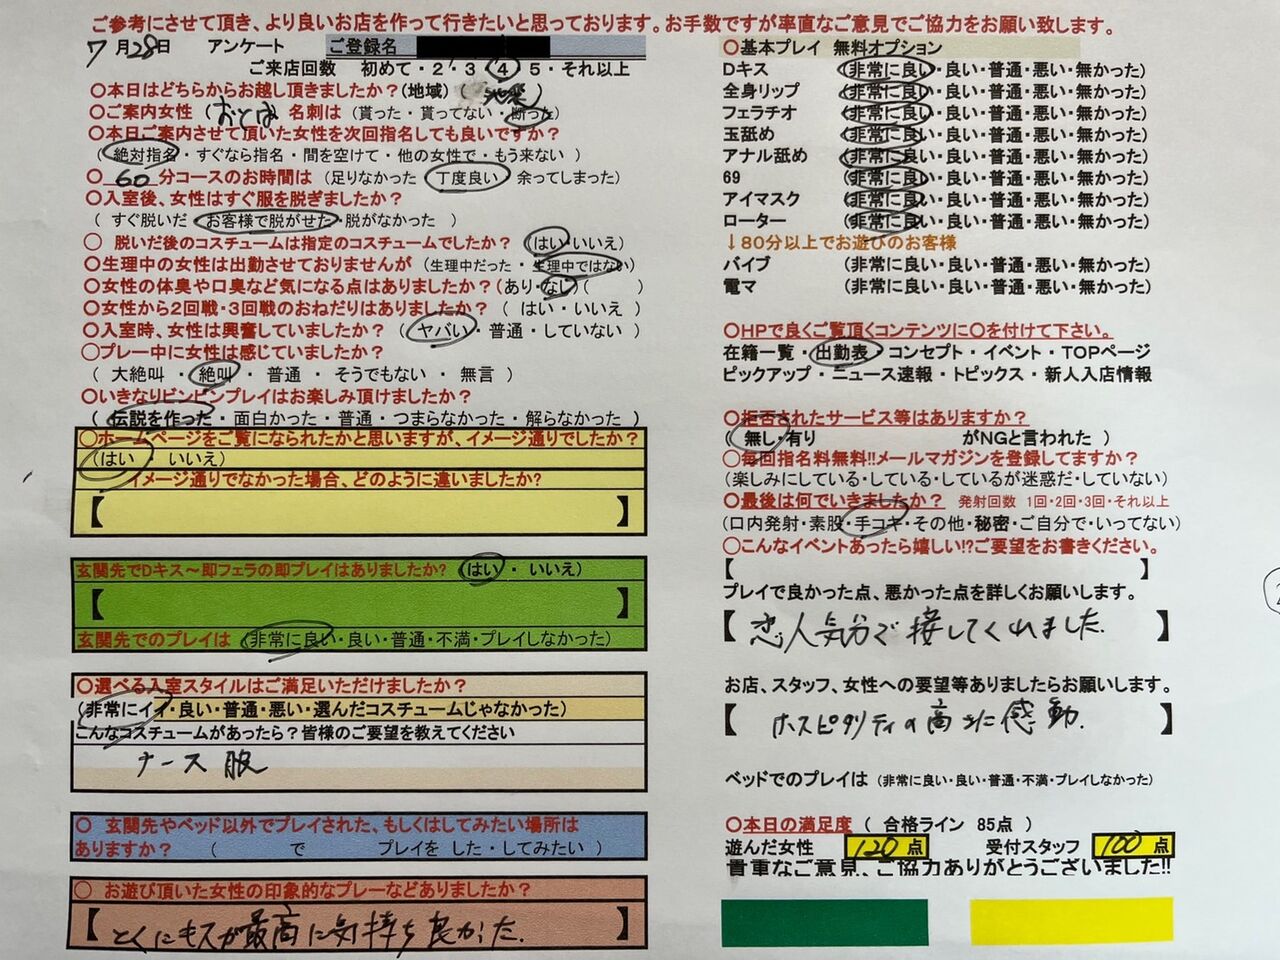 ご参考にさせて頂き、より良いお店を作って行きたいと思っております。お手数ですが率直なご意見でご協力をお願い致します。
7月28日 アンケート ご登録名
ご来店回数 初めて・2・3・4・5・それ以上
○本日はどちらからお越し頂きましたか?(地域)( )
○ご案内女性 (おとは 名刺は (貰った・貰ってない・断った)
○本日ご案内させて頂いた女性を次回指名しても良いですか?
( 絶対指名・すぐなら指名・間を空けて・他の女性で・もう来ない )
○ 60 分コースのお時間は (足りなかった・丁度良い・余ってしまった)
○入室後、女性はすぐ服を脱ぎましたか?
( すぐ脱いだ・お客様で脱がせた・脱がなかった )
○ 脱いだ後のコスチュームは指定のコスチュームでしたか? (はい・いいえ)
○生理中の女性は出勤させておりませんが (生理中だった・生理中ではない)
○女性の体臭や口臭など気になる点はありましたか?(あり・なし)( )
○女性から2回戦・3回戦のおねだりはありましたか? ( はい・いいえ )
○入室時、女性は興奮していましたか? ( ヤバい・普通・していない )
○プレー中に女性は感じていましたか?
( 大絶叫・絶叫・普通・そうでもない・無言 )
○いきなりビンビンプレイはお楽しみ頂けましたか?
( 伝説を作った・面白かった・普通・つまらなかった・解らなかった )
○ホームページをご覧になられたかと思いますが、イメージ通りでしたか?
(はい いいえ)
イメージ通りでなかった場合、どのように違いましたか?
【 】
玄関先でDキス～即フェラの即プレイはありましたか? (はい・いいえ)
【 】
玄関先でのプレイは (非常に良い・良い・普通・不満・プレイしなかった)
○選べる入室スタイルはご満足いただけましたか?
(非常にイイ・良い・普通・悪い・選んだコスチュームじゃなかった)
こんなコスチュームがあったら?皆様のご要望を教えてください
ナース服
○ 玄関先やベッド以外でプレイされた、もしくはしてみたい場所は
ありますか? ( で プレイを した・してみたい )
○ お遊び頂いた女性の印象的なプレーなどありましたか?
【 とくにキスが最高に気持ち良かった. 】
○基本プレイ 無料オプション
Dキス (非常に良い・良い・普通・悪い・無かった)
全身リップ (非常に良い・良い・普通・悪い・無かった)
フェラチオ (非常に良い・良い・普通・悪い・無かった)
玉舐め (非常に良い・良い・普通・悪い・無かった)
アナル舐め (非常に良い・良い・普通・悪い・無かった)
69 (非常に良い・良い・普通・悪い・無かった)
アイマスク (非常に良い・良い・普通・悪い・無かった)
ローター (非常に良い・良い・普通・悪い・無かった)
↓80分以上でお遊びのお客様
バイブ (非常に良い・良い・普通・悪い・無かった)
電マ (非常に良い・良い・普通・悪い・無かった)
○HPで良くご覧頂くコンテンツに○を付けて下さい。
在籍一覧・出勤表・コンセプト・イベント・TOPページ
ピックアップ・ニュース速報・トピックス・新人入店情報
○拒否されたサービス等はありますか?
( 無し・有り がNGと言われた )
○毎回指名料無料!!メールマガジンを登録してますか?
(楽しみにしている・している・しているが迷惑だ・していない)
○最後は何でいきましたか? 発射回数 1回・2回・3回・それ以上
(口内発射・素股・手コキ・その他・秘密・ご自分で・いってない)
○こんなイベントあったら嬉しい!?ご要望をお書きください。
【 】
プレイで良かった点、悪かった点を詳しくお願いします。
【 恋人気分で接してくれました. 】
お店、スタッフ、女性への要望等ありましたらお願いします。
【 ホスピタリティの高さに感動. 】
ベッドでのプレイは (非常に良い・良い・普通・不満・プレイしなかった)
○本日の満足度 ( 合格ライン 85点 )
遊んだ女性 120 点 受付スタッフ 100 点
貴重なご意見、ご協力ありがとうございました!!